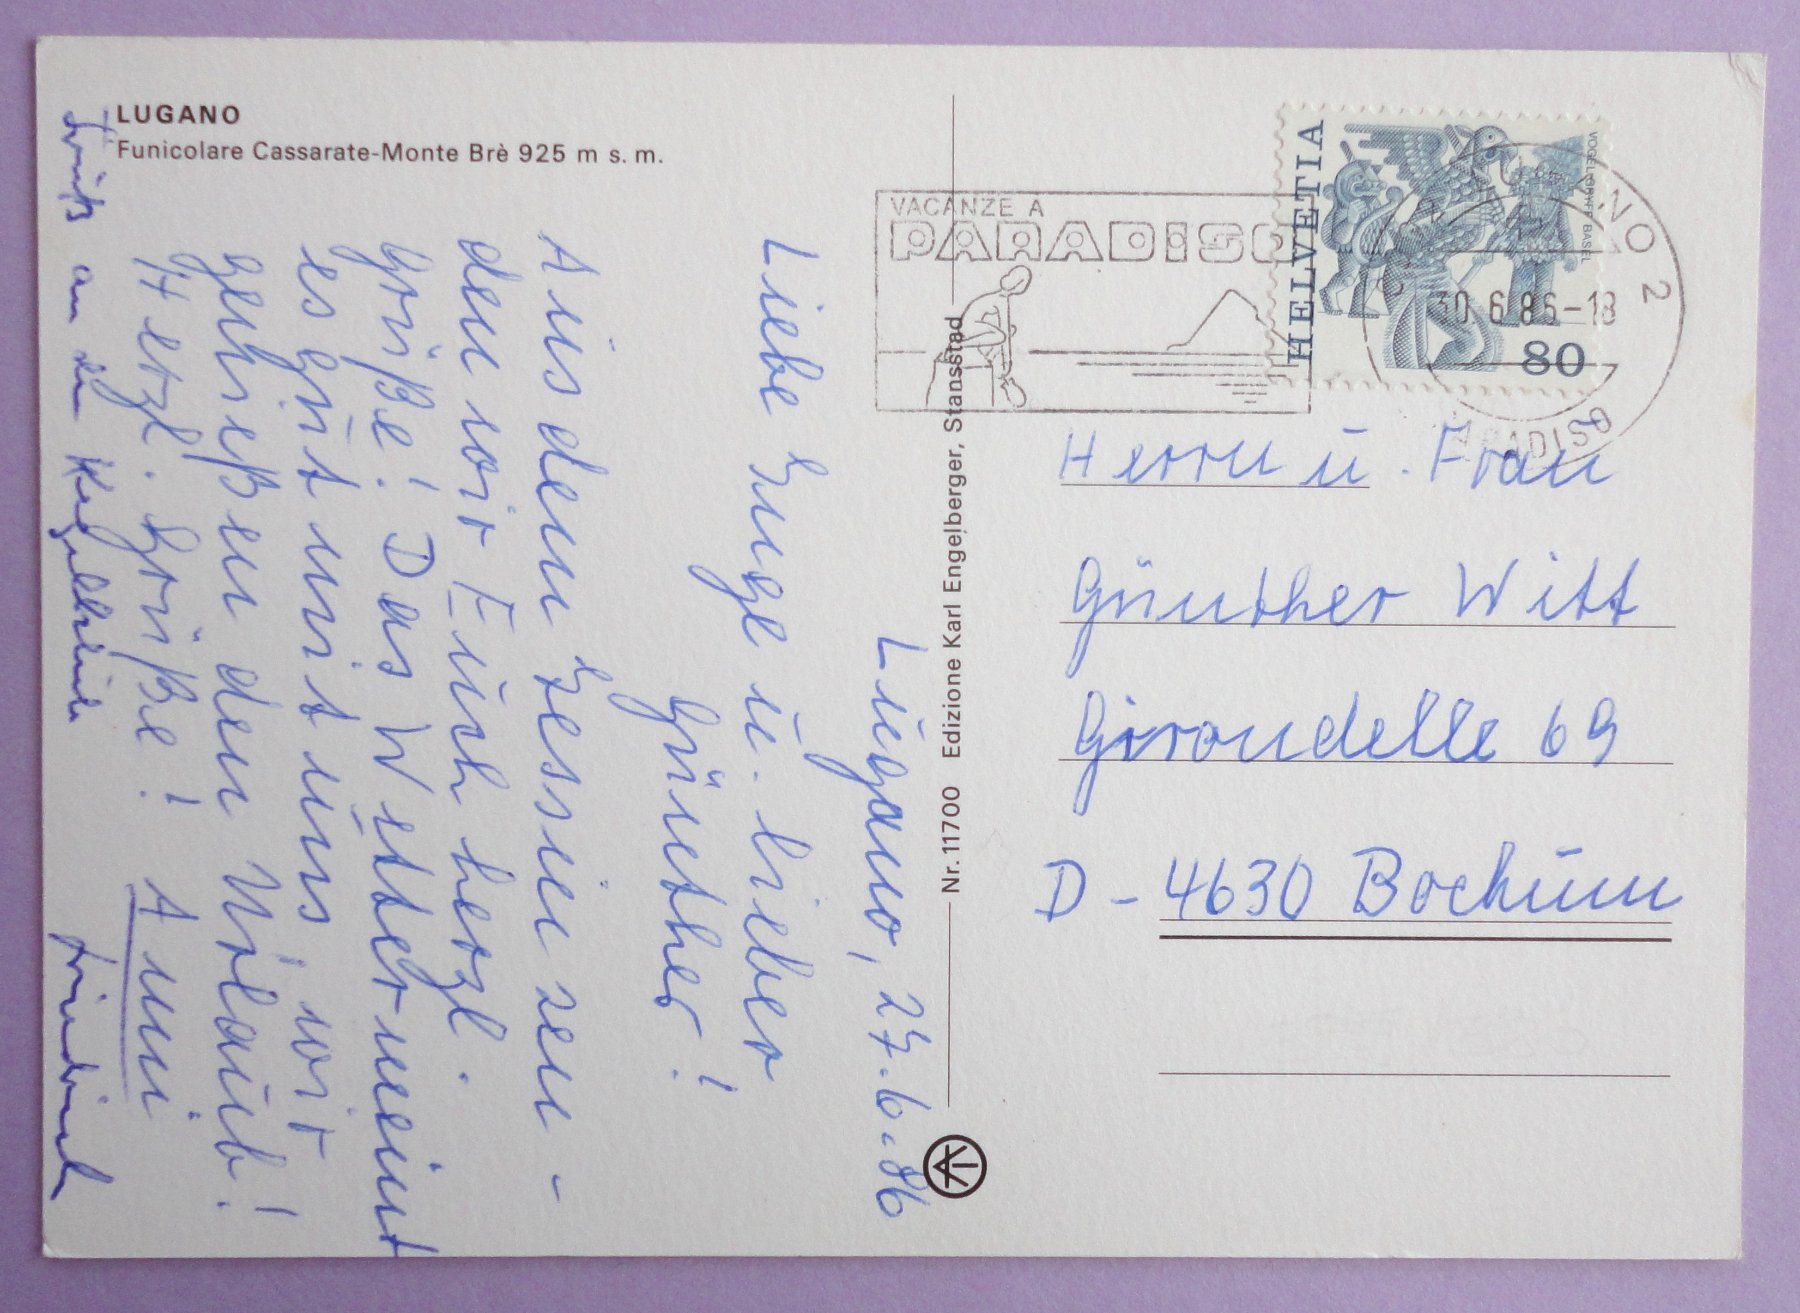 LUGANO
Funicolare Cassarate-Monte Brè 925 m s. m.
Lugano, 27.6.86
Liebe Inge u. lieber
Günther!
Aus dem Tessin sen-
den wir Euch herzl.
Grüße! Das Wetter meint
es gut mit uns, wir
genießen den Urlaub!
Herzl. Grüße! Anni
Gruß an die
Nr. 11700 Edizione Karl Engelberger, Stansstad
VACANZE A
PARADISO
HELVETIA
VOGEL GRYFF BASEL
80
LUGANO 2
30.6.86-18
PARADISO
Herrn u. Frau
Günther Witt
Girondelle 69
D - 4630 Bochum